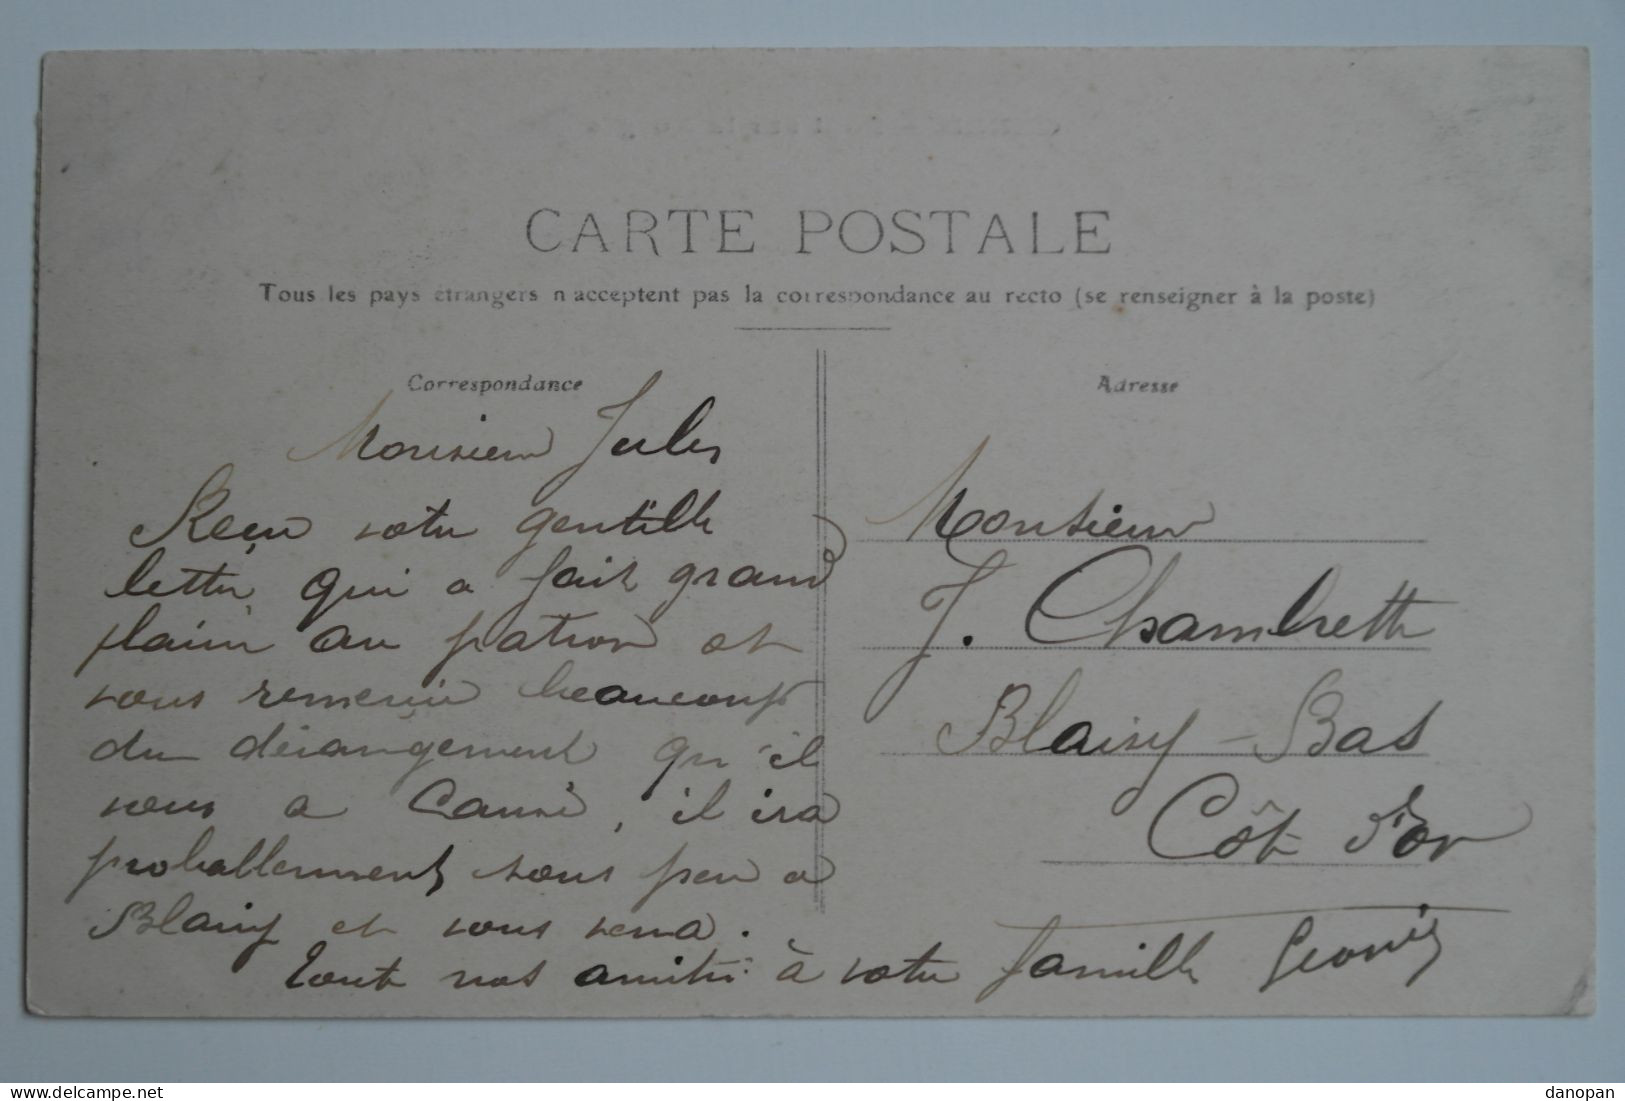 CARTE POSTALE
Tous les pays étrangers n'acceptent pas la correspondance au recto (se renseigner à la poste)
Correspondance
Monsieur Jules
Reçu votre gentille
lettre, qui a fait grand
plaisir au patron et
vous remercie beaucoup
du dérangement qu'il
vous a causé, il ira
probablement sous peu a
Blaisy et vous verra.
Toute nos amitié à votre famille
Adresse
Monsieur
J. Chambrette
Blaisy-Bas
Côte d'Or
delcampe.net
danopan